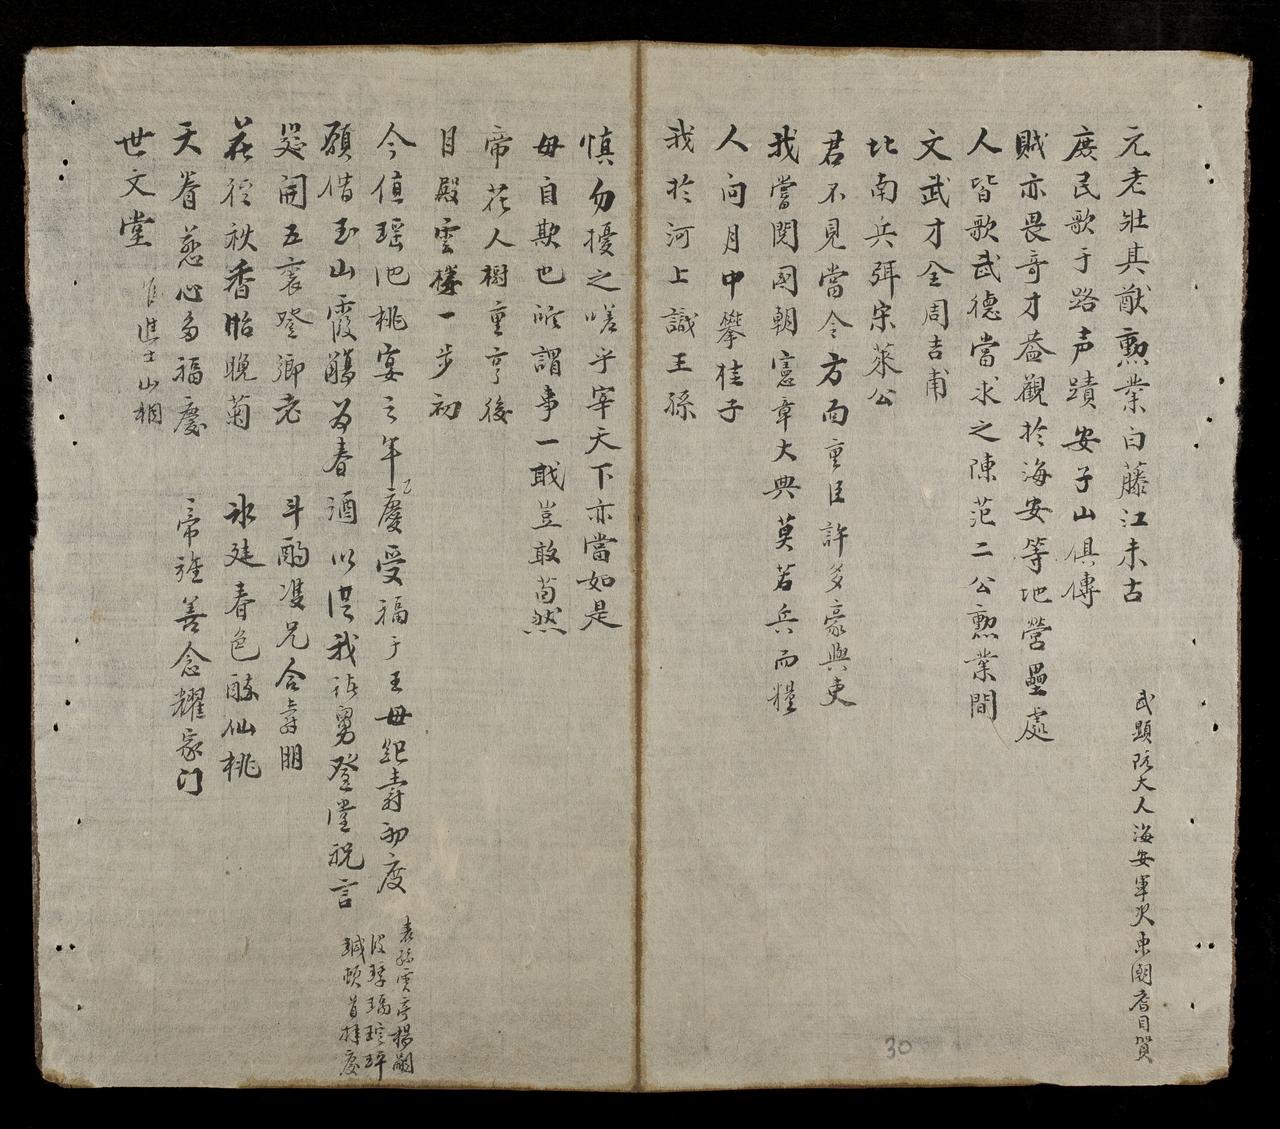 元老壯其猷勲業白藤江未古
武顯阮大人海安軍次東閣序目賀
庶民歌于路声蹟安子山俱傳
賊亦畏奇才益觀於海安等地營壘處
人皆歌武德當求之陳范二公勲業間
文武才全周吉甫
北南兵弭宋萊公
君不見當今方面重臣許多豪與吏
我嘗閱國朝憲章大典莫若兵而糧
人问月中攀桂子
我於河上識王孫
慎勿擾之嗟乎宰天下亦當如是
毋自欺也所謂事一戢豈敢苟然
帝花人樹重亨後
月殿雲梯一步初
今值瑶池桃宴之年慶受福于王母紀壽初度
表孫雲亭楊嗣
願借玉山霞觴为春酒以供我諸舅登堂祝言
頓首拜慶
筵開五袠登鄉老 斗酌雙兄合壽朋
花徑秋香貽晚菊 冰廷春色醉仙桃
天眷慈心多福慶 帝旌善念耀家门
世文堂 進士山桐
30